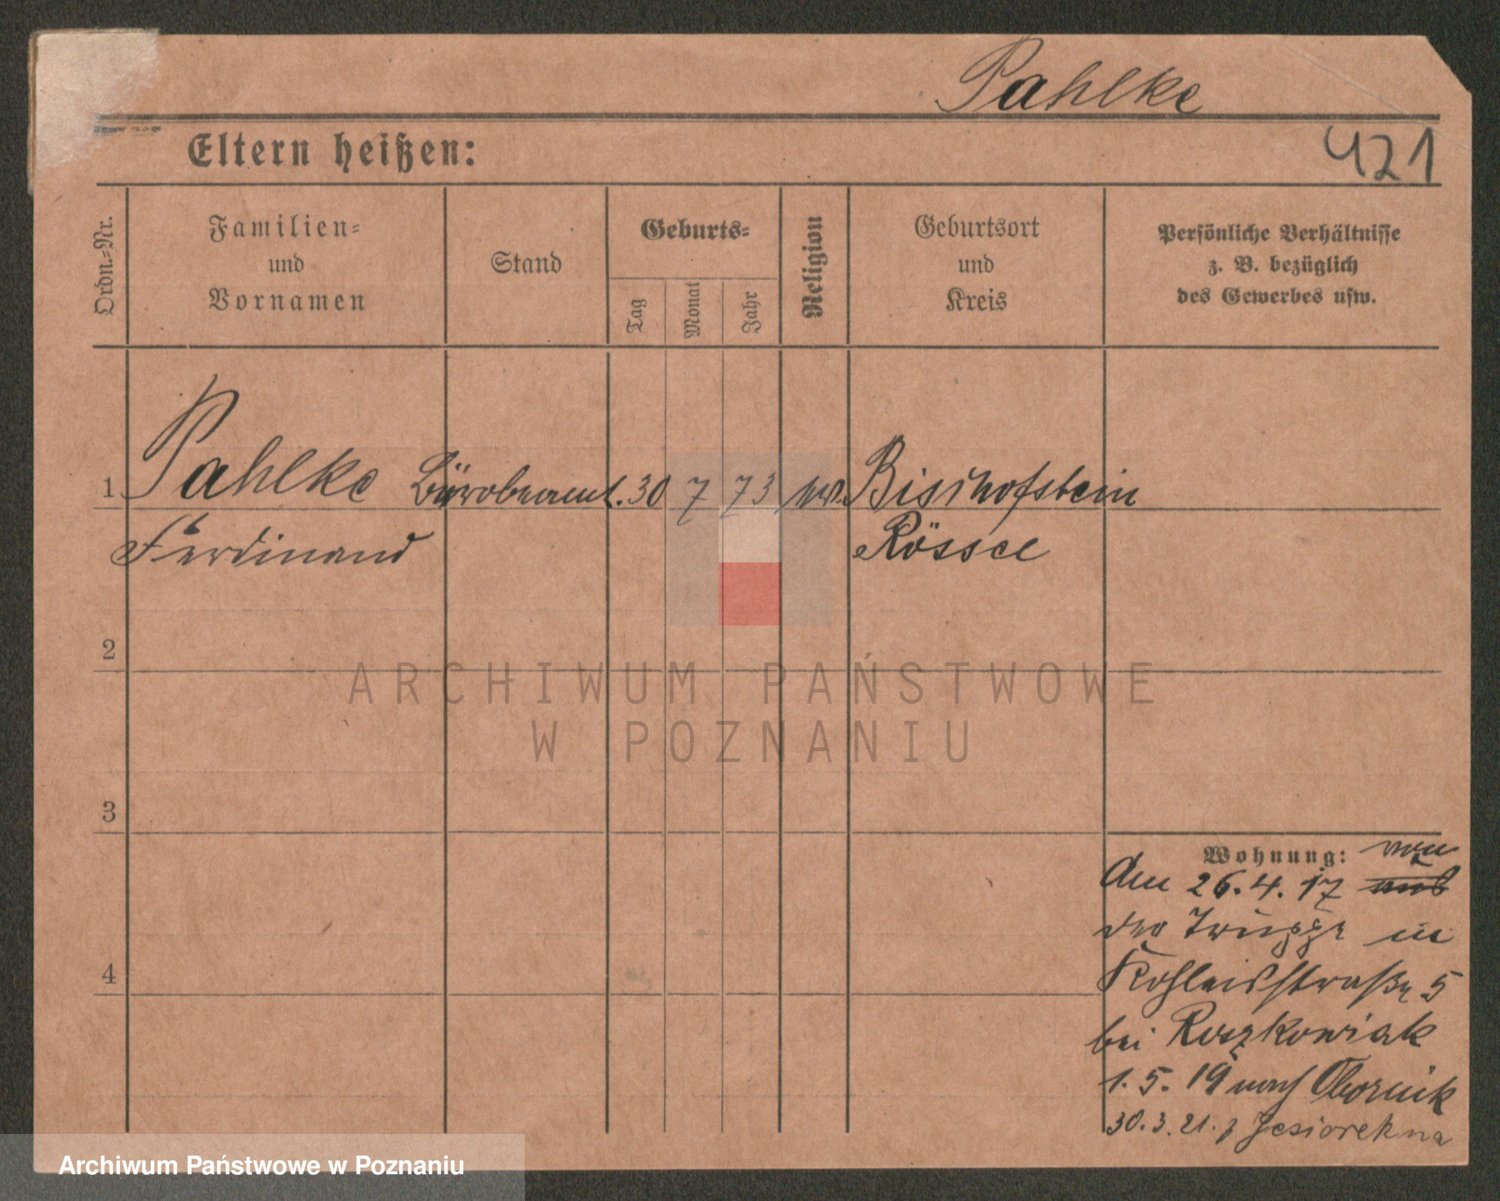 Pahlke
421
Eltern heißen:
Ordn.-Nr.
Familien-
und
Vornamen
Stand
Geburts-
Tag
Monat
Jahr
Religion
Geburtsort
und
Kreis
Persönliche Verhältnisse
z. B. bezüglich
des Gewerbes usw.
1 Pahlke Bürobeamt. 30 7 73 Bischofstein
Ferdinand Rössel
2
3
4
Wohnung: von
Am 26.4.17 aus
der Truppe in
5
bei Roszkowiak
1.5.19 nach Obornik
30.3.21. z Jesiorekna
ARCHIWUM PAŃSTWOWE
W POZNANIU
Archiwum Państwowe w Poznaniu